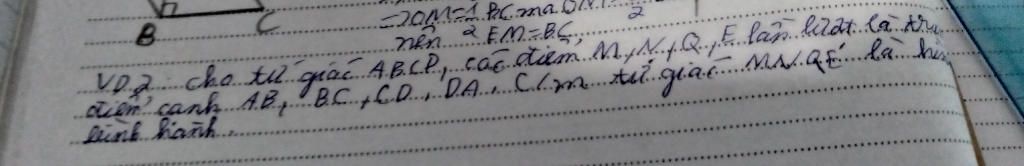 B C
=> OM = 1/2 BC mà
nên EM = BC
VD2: cho tứ giác ABCD, các điểm M, N, Q, E lần lượt là
điểm cạnh AB, BC, CD, DA. C/m tứ giác MNQE là
bình hành.